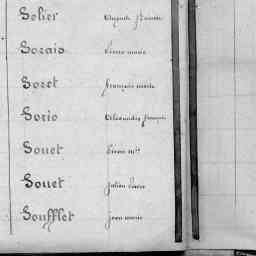 Solier
Soraio Pierre marie
Soret françois marie
Sorio Alexandre françois
Souet Pierre m
Souet Julien Pierre
Soufflet jean marie